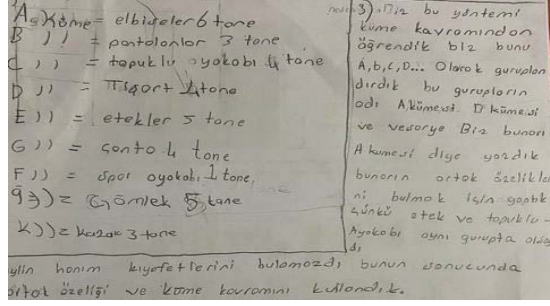 A Küme = elbiseler 6 tane
B )) = pantolonlar 3 tane
C )) = topuklu ayokabı 4 tane
D )) = Tişört 4 tane
E )) = etekler 5 tane
G )) = çanta 4 tane
F )) = spor ayokabı 1 tane
)) = Gömlek 5 tane
K )) = kazak 3 tane
3) Biz bu yöntemi
küme kavramından
öğrendik biz bunu
A,b,c,D... Olarak guruplan
dırdık bu gurupların
adı A.kümesi. D kümesi
ve vesarye Biz bunarı
A kumesi diye yazdık
bunarın ortak özelikle
ni bulmak için yaptık
çünkü etek ve topuklu-
Ayokabı aynı gurupta
dı
ylin hanım kıyafetlerini bulamazdı bunun sonucunda
ortak özeliği ve küme kavramını kullandık.